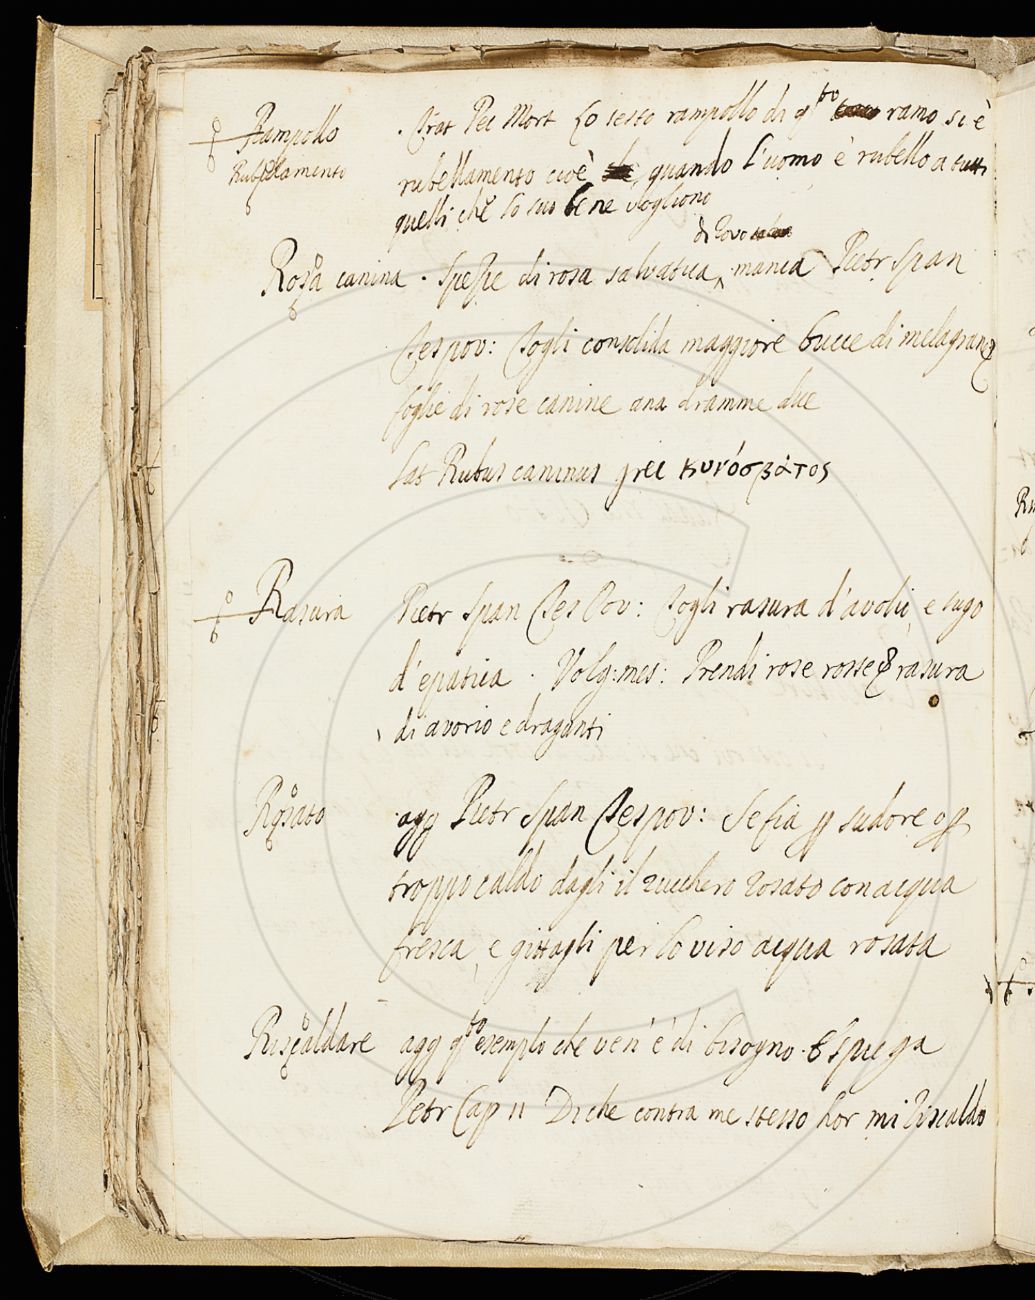 Rampollo . Trat Pec Mort Lo sesto rampollo di qsto ramo si è
Rubellamento rubellamento cioè, quando l'uomo è rubello a tutti
quelli che lo suo bene vogliono
di Rovo
Rosa canina . Spezie di rosa salvatica, manca Pietr Span
Tes pov: Togli consolida maggiore bucce di melagrane
foglie di rose canine ana dramme due
lat Rubus caninus grec κυνόσβατος
Rasura Pietr Span Tes Pov: Togli rasura d'avolio, e sugo
d'epatica . Volg: mes: Prendi rose rosse rasura
di avorio e draganti
Rosato agg Pietr Span Tes pov: Se fia p sudore o p
troppo caldo dagli il zucchero rosato con acqua
fresca, e gittagli per lo viso acqua rosata
Riscaldare agg qsto esemplo che ven'è di bisogno.
Petr Cap 11 Di che contra me stesso hor mi riscaldo